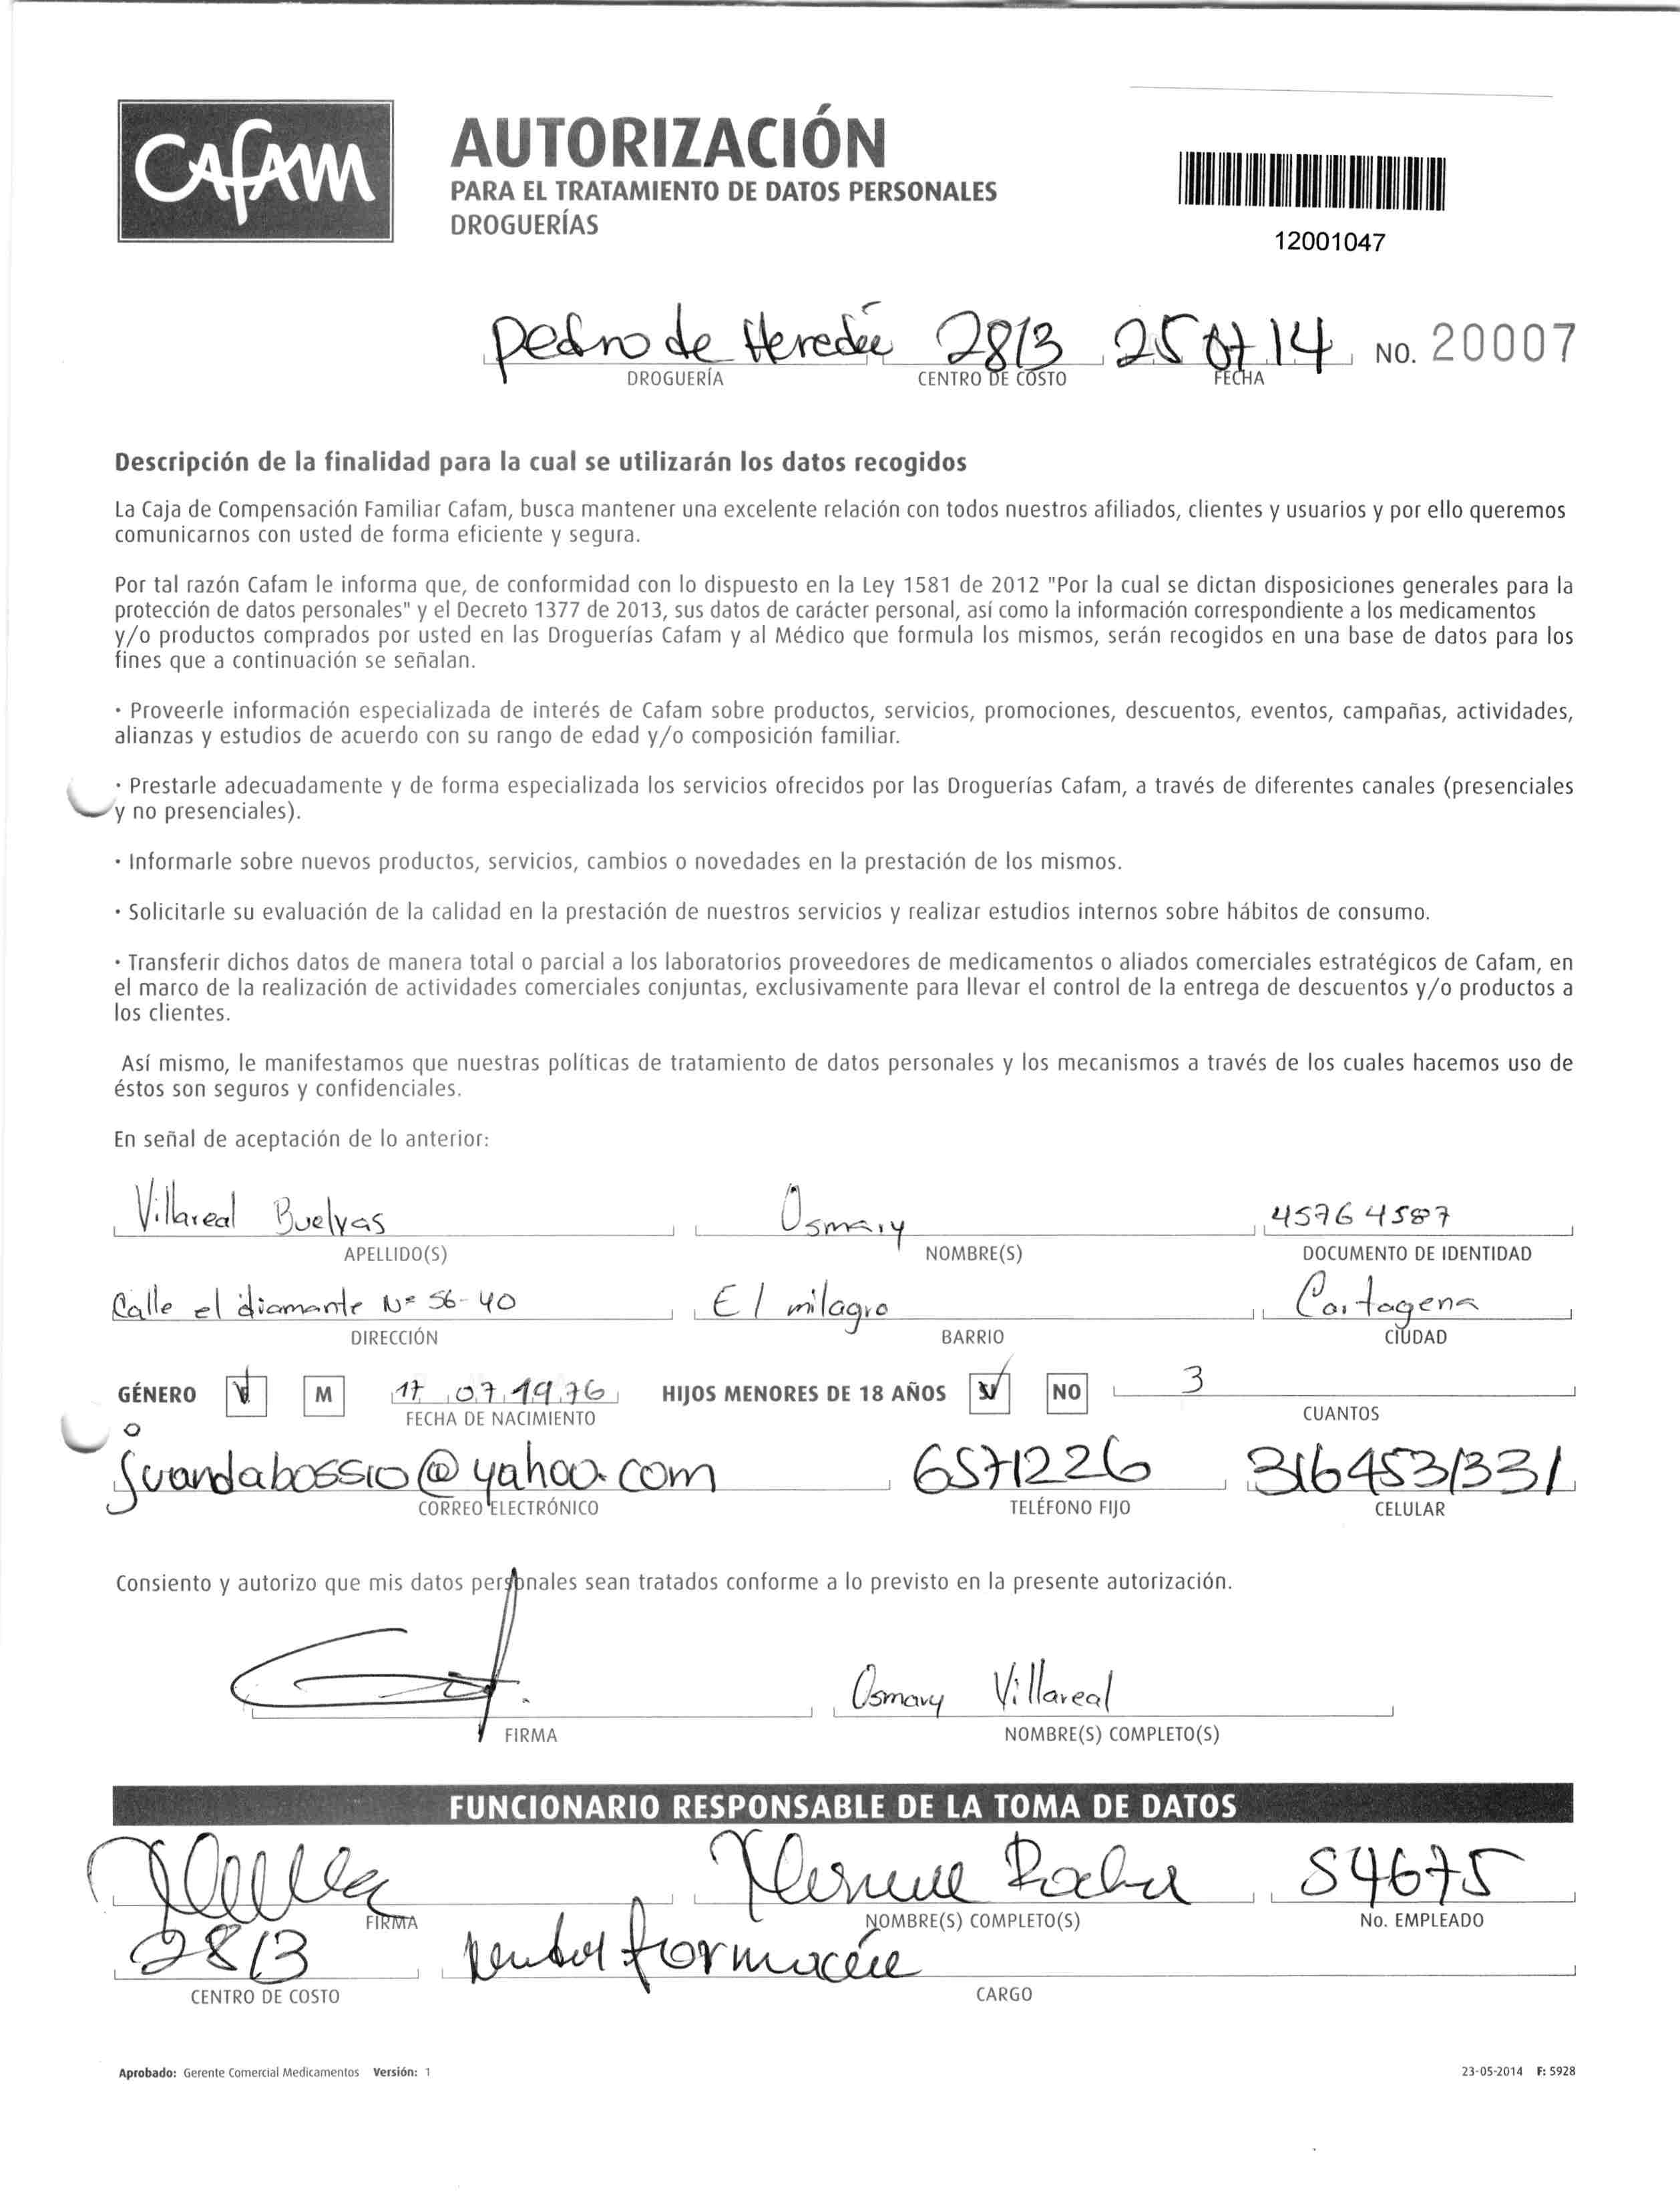 Cafam
AUTORIZACIÓN
PARA EL TRATAMIENTO DE DATOS PERSONALES
DROGUERÍAS
12001047
Pedro de Heredia 2813 25 07 14 NO. 20007
DROGUERÍA CENTRO DE COSTO FECHA
Descripción de la finalidad para la cual se utilizarán los datos recogidos
La Caja de Compensación Familiar Cafam, busca mantener una excelente relación con todos nuestros afiliados, clientes y usuarios y por ello queremos
comunicarnos con usted de forma eficiente y segura.
Por tal razón Cafam le informa que, de conformidad con lo dispuesto en la Ley 1581 de 2012 "Por la cual se dictan disposiciones generales para la
protección de datos personales" y el Decreto 1377 de 2013, sus datos de carácter personal, así como la información correspondiente a los medicamentos
y/o productos comprados por usted en las Droguerías Cafam y al Médico que formula los mismos, serán recogidos en una base de datos para los
fines que a continuación se señalan.
· Proveerle información especializada de interés de Cafam sobre productos, servicios, promociones, descuentos, eventos, campañas, actividades,
alianzas y estudios de acuerdo con su rango de edad y/o composición familiar.
· Prestarle adecuadamente y de forma especializada los servicios ofrecidos por las Droguerías Cafam, a través de diferentes canales (presenciales
y no presenciales).
· Informarle sobre nuevos productos, servicios, cambios o novedades en la prestación de los mismos.
· Solicitarle su evaluación de la calidad en la prestación de nuestros servicios y realizar estudios internos sobre hábitos de consumo.
· Transferir dichos datos de manera total o parcial a los laboratorios proveedores de medicamentos o aliados comerciales estratégicos de Cafam, en
el marco de la realización de actividades comerciales conjuntas, exclusivamente para llevar el control de la entrega de descuentos y/o productos a
los clientes.
Así mismo, le manifestamos que nuestras políticas de tratamiento de datos personales y los mecanismos a través de los cuales hacemos uso de
éstos son seguros y confidenciales.
En señal de aceptación de lo anterior:
Villareal Buelvas Osmary 45764587
APELLIDO(S) NOMBRE(S) DOCUMENTO DE IDENTIDAD
Calle el diamante Nº 56-40 El milagro Cartagena
DIRECCIÓN BARRIO CIUDAD
GÉNERO M 17 07 1976 HIJOS MENORES DE 18 AÑOS NO 3
FECHA DE NACIMIENTO CUANTOS
juandabossio@yahoo.com 6571226 3164531331
CORREO ELECTRÓNICO TELÉFONO FIJO CELULAR
Consiento y autorizo que mis datos personales sean tratados conforme a lo previsto en la presente autorización.
Osmary Villareal
FIRMA NOMBRE(S) COMPLETO(S)
FUNCIONARIO RESPONSABLE DE LA TOMA DE DATOS
54675
FIRMA NOMBRE(S) COMPLETO(S) No. EMPLEADO
2813
CENTRO DE COSTO CARGO
Aprobado: Gerente Comercial Medicamentos Versión: 1 23-05-2014 F: 5928